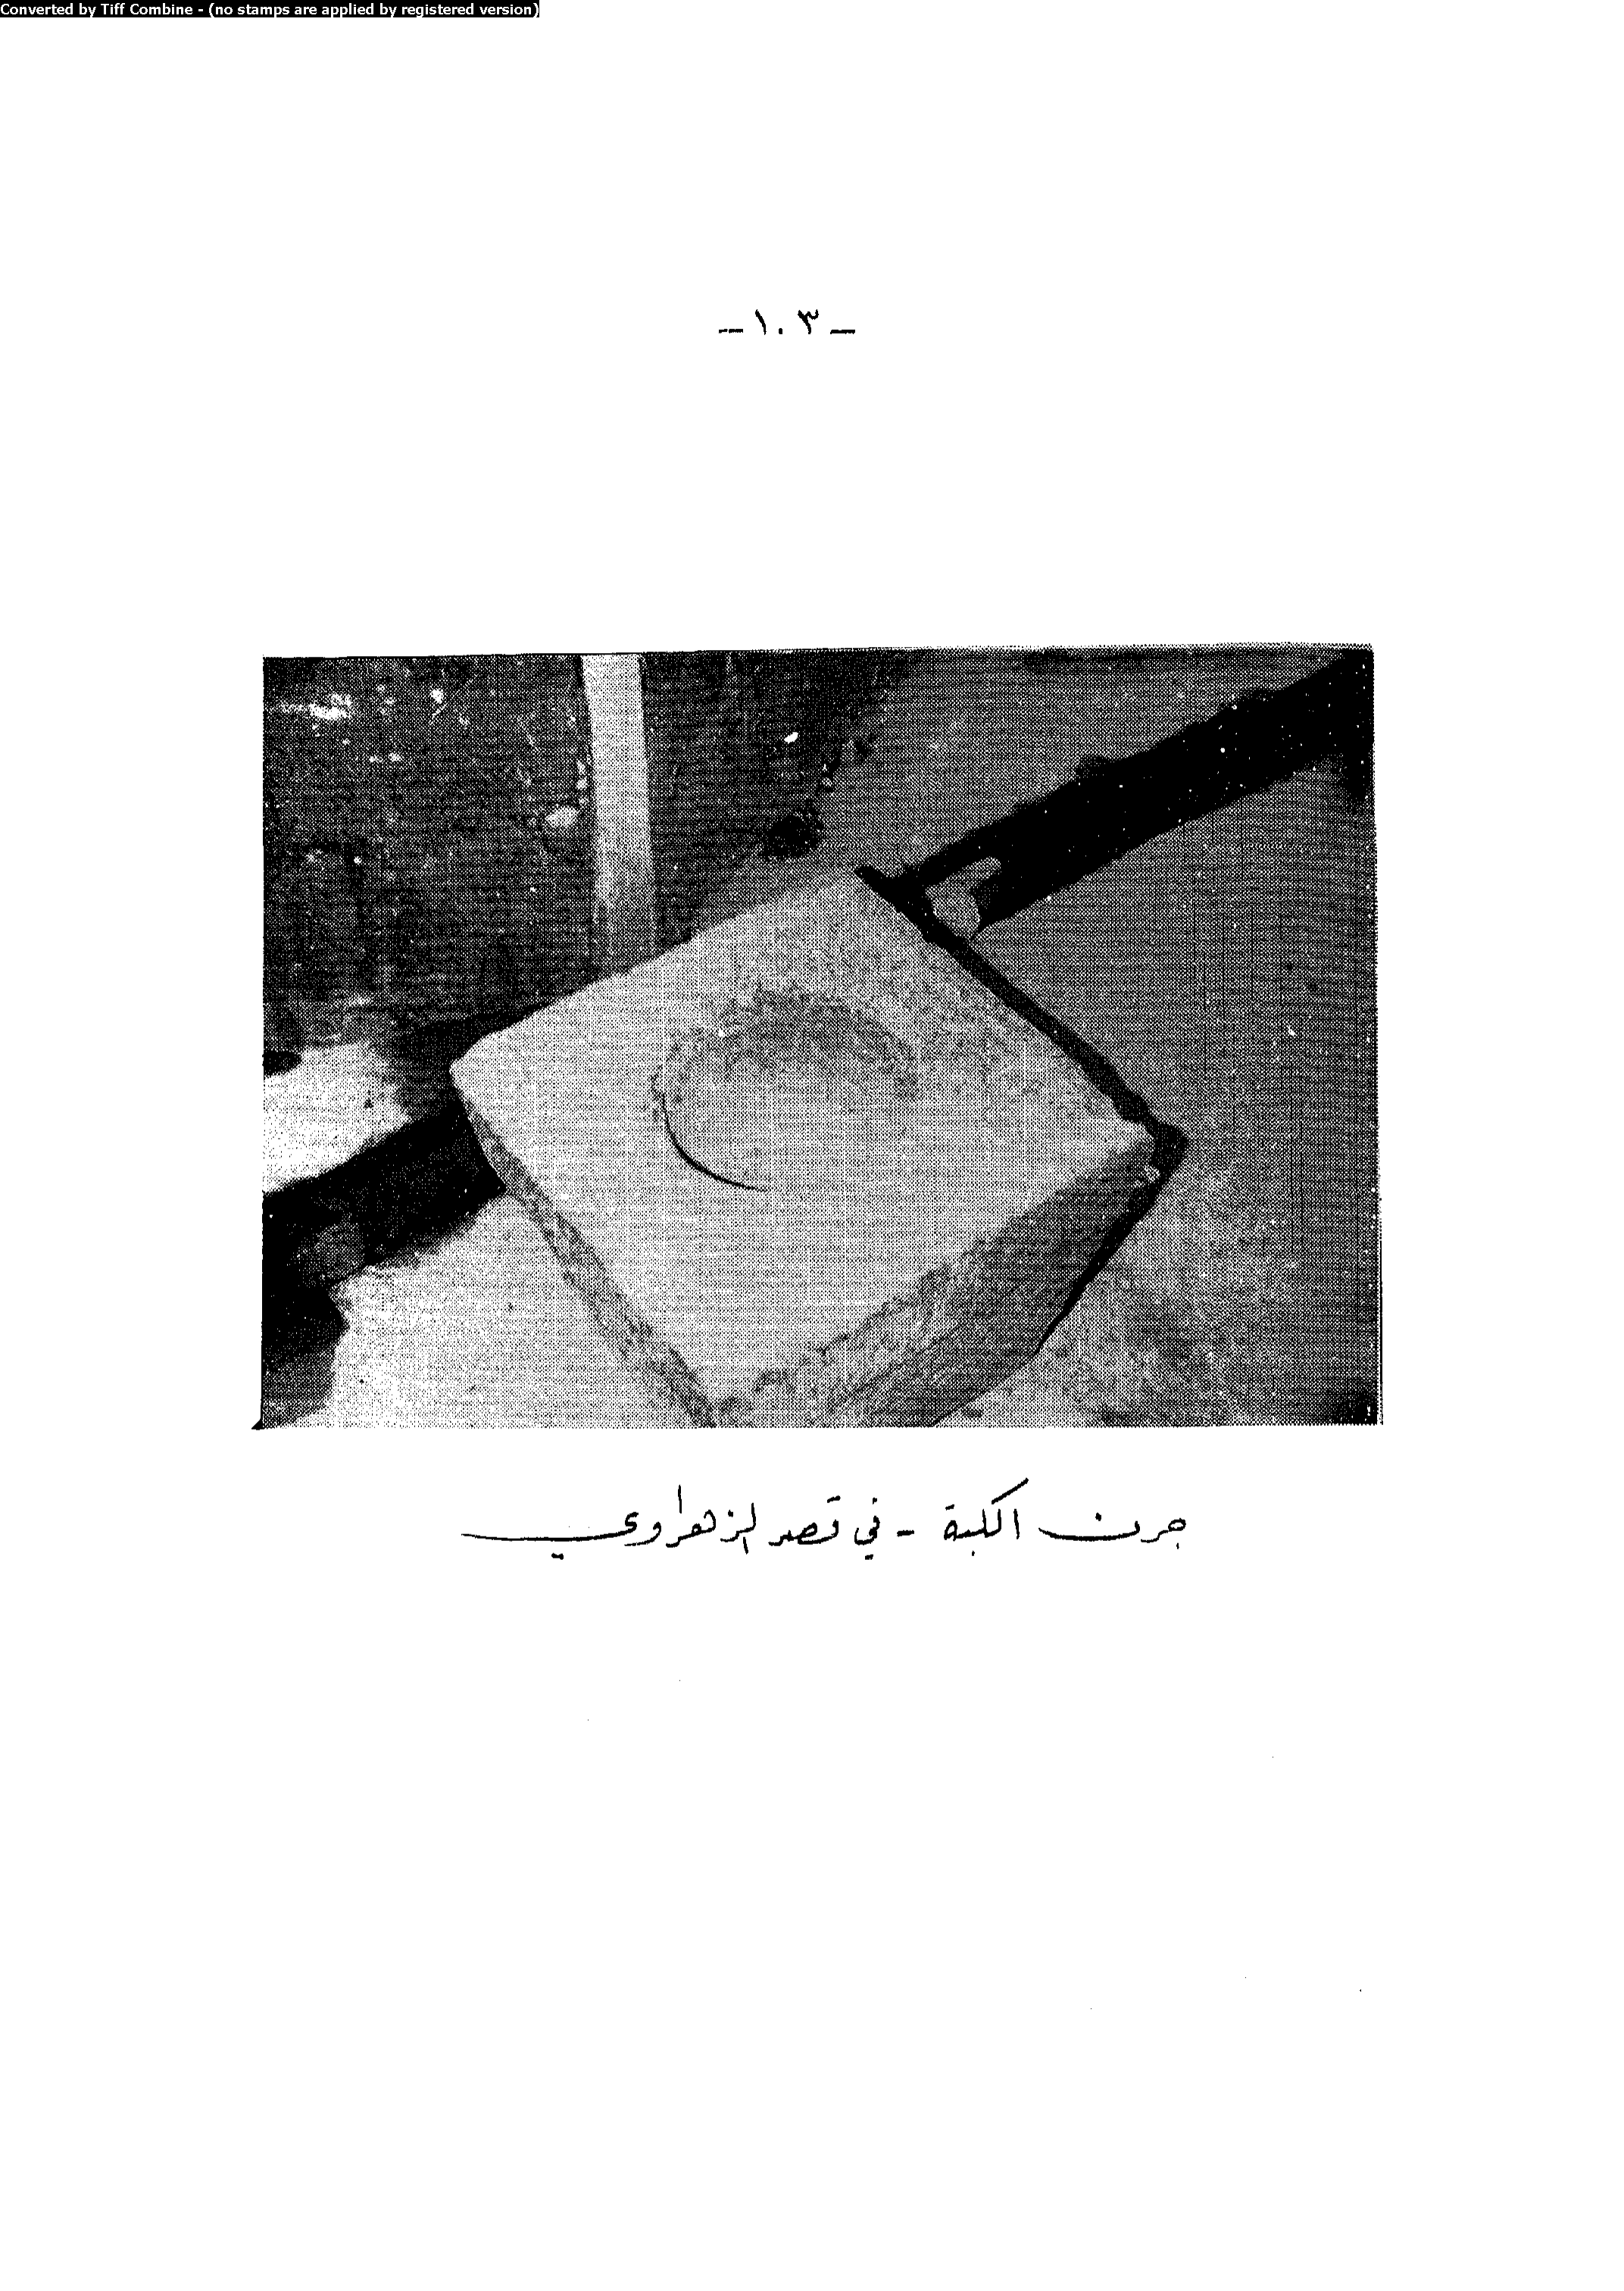 Converted by Tiff Combine - (no stamps are applied by registered version)
- ١٠٣ -
جرن الكبة - في قصر الزهراوي